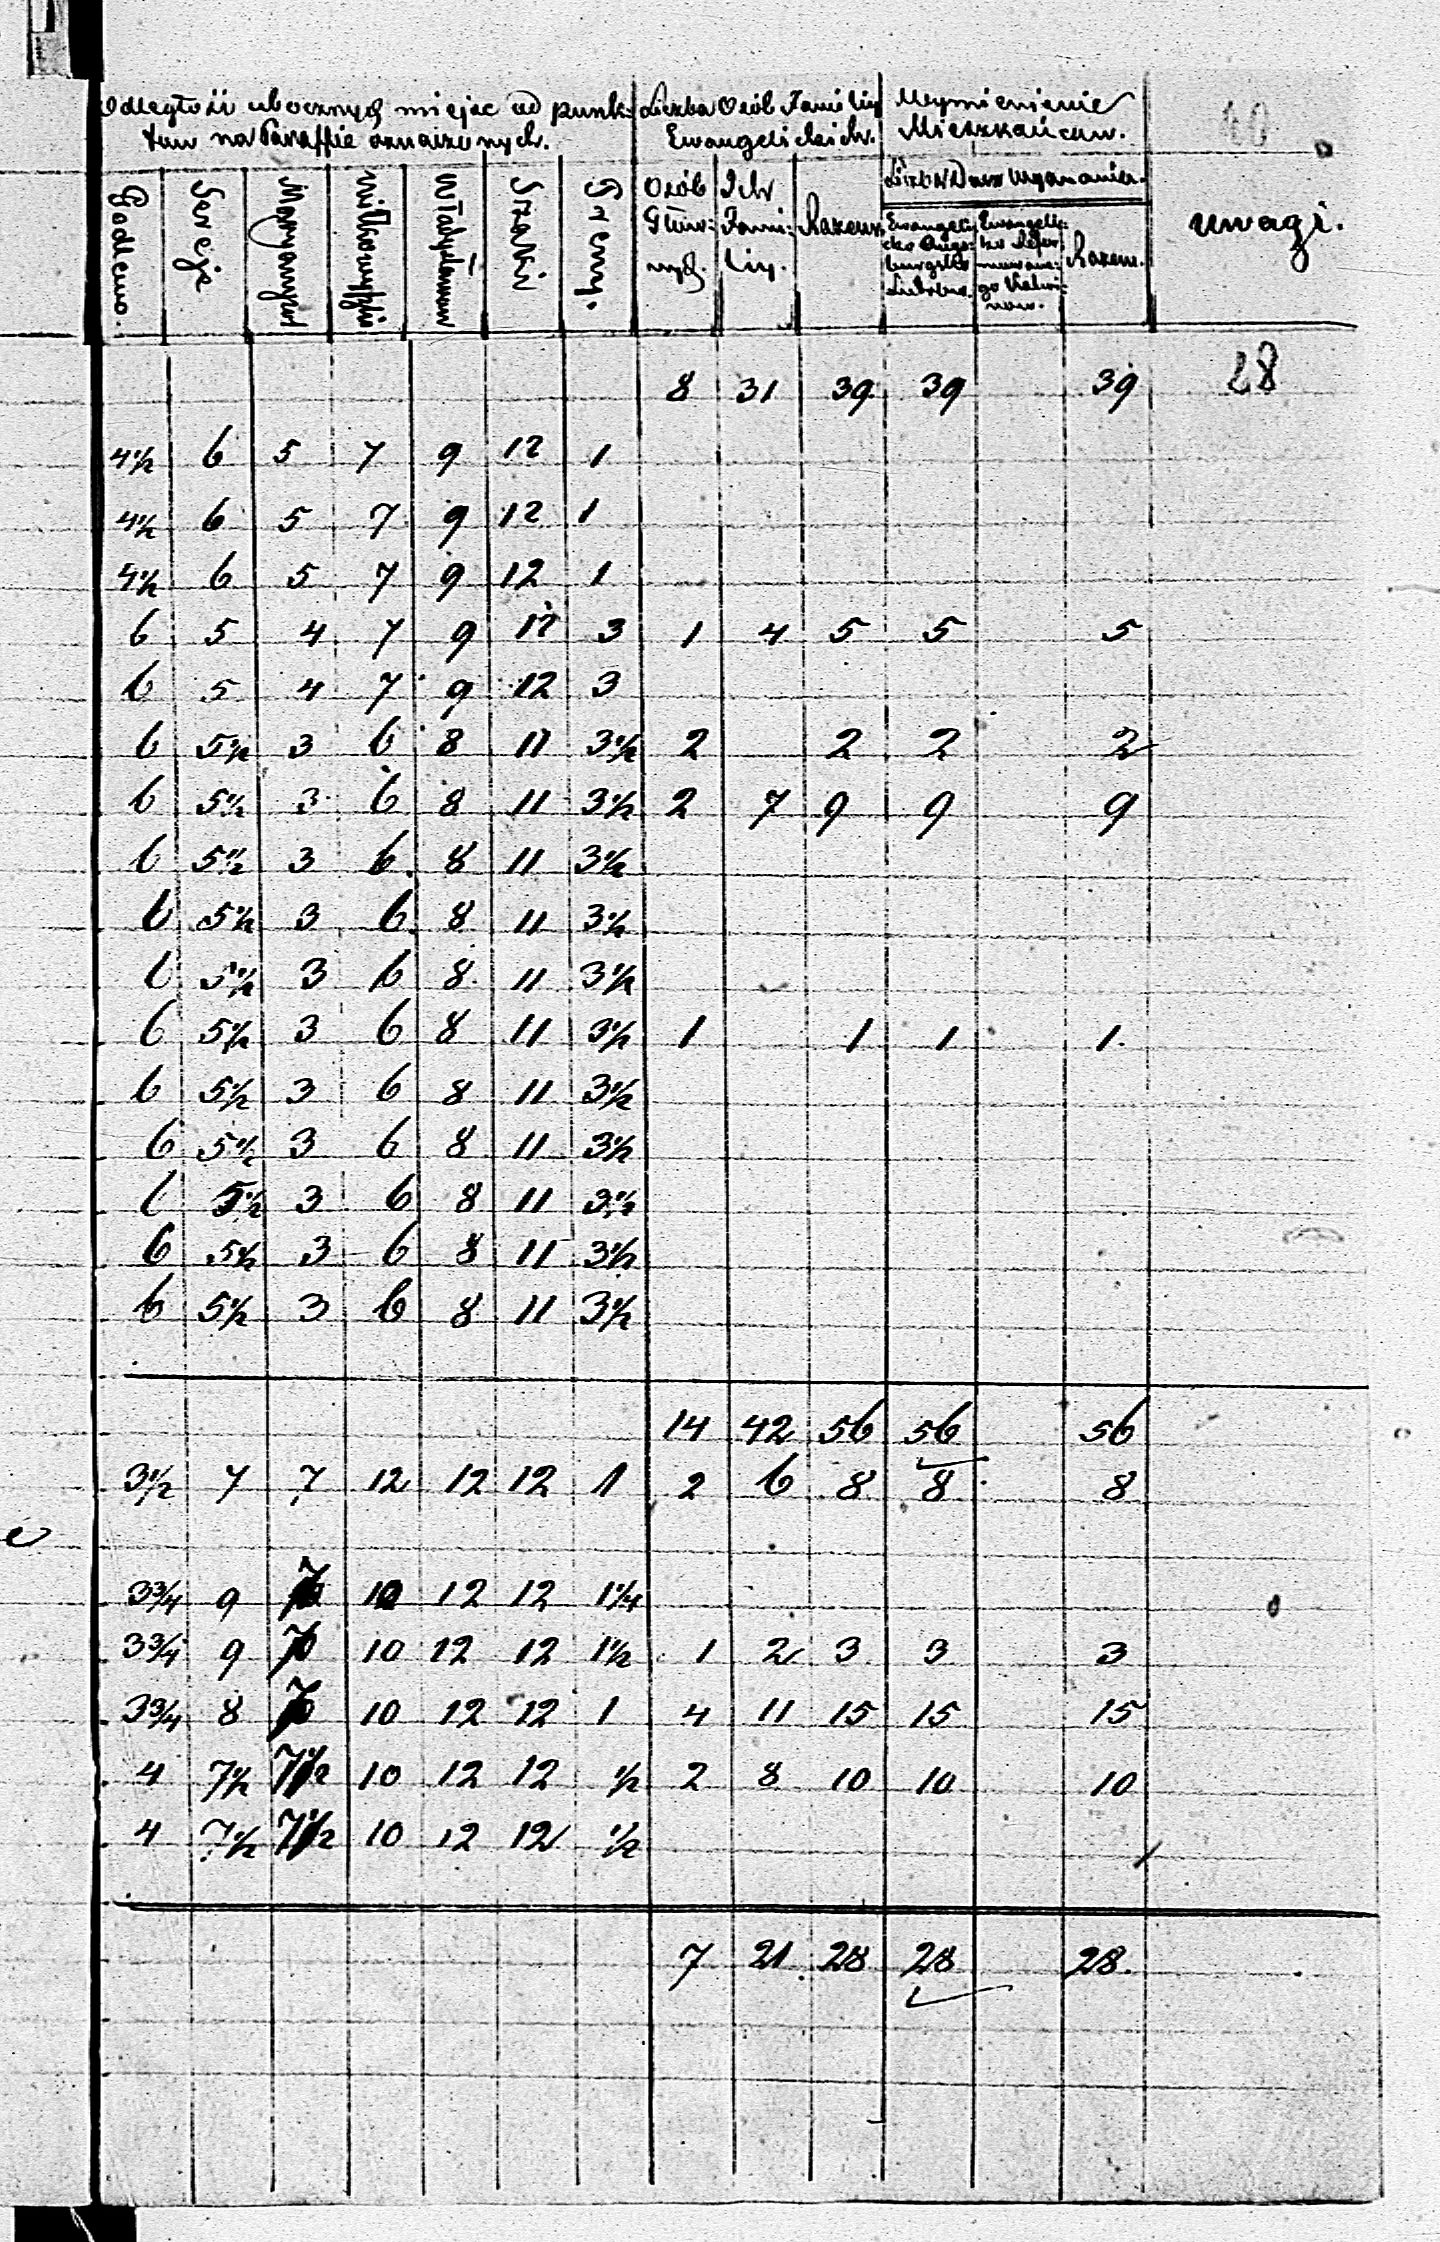 Odległość ubocznych miejsc od punk-
tów na Paraffie oznaczonych.
Liczba Osób Familiy
Ewangelickich.
Wymienienie
Mieszkańców.
Godlewo.
Sereje
Maryampol
Wiłkowyszki
Władysławow
Szaki
Preny.
Osób
Głów-
nych.
Ich
Fami-
liy.
Razem
Liczba Dusz Wyznania.
Ewangelic-
ko Augs-
burgsko
Luters.
Razem.
uwagi.
8 31 39 39 39 28
4½ 6 5 7 9 12 1
4½ 6 5 7 9 12 1
4½ 6 5 7 9 12 1
6 5 4 7 9 12 3 1 4 5 5 5
6 5 4 7 9 12 3
6 5½ 3 6 8 11 3½ 2 2 2 2
6 5½ 3 6 8 11 3½ 2 7 9 9 9
6 5½ 3 6 8 11 3½
6 5½ 3 6 8 11 3½
6 5½ 3 6 8 11 3½
6 5½ 3 6 8 11 3½ 1 1 1 1.
6 5½ 3 6 8 11 3½
6 5½ 3 6 8 11 3½
6 5½ 3 6 8 11 3½
6 5½ 3 6 8 11 3½
6 5½ 3 6 8 11 3½
14 42 56 56 56
3½ 7 7 12 12 12 1 2 6 8 8 8
3¾ 9 7 10 12 12 1¼
3¾ 9 7 10 12 12 1½ 1 2 3 3 3
3¾ 8 7 10 12 12 1 4 11 15 15 15
4 7½ 7½ 10 12 12 ½ 2 8 10 10 10
4 7½ 7½ 10 12 12 ½
7 21 28 28 28.